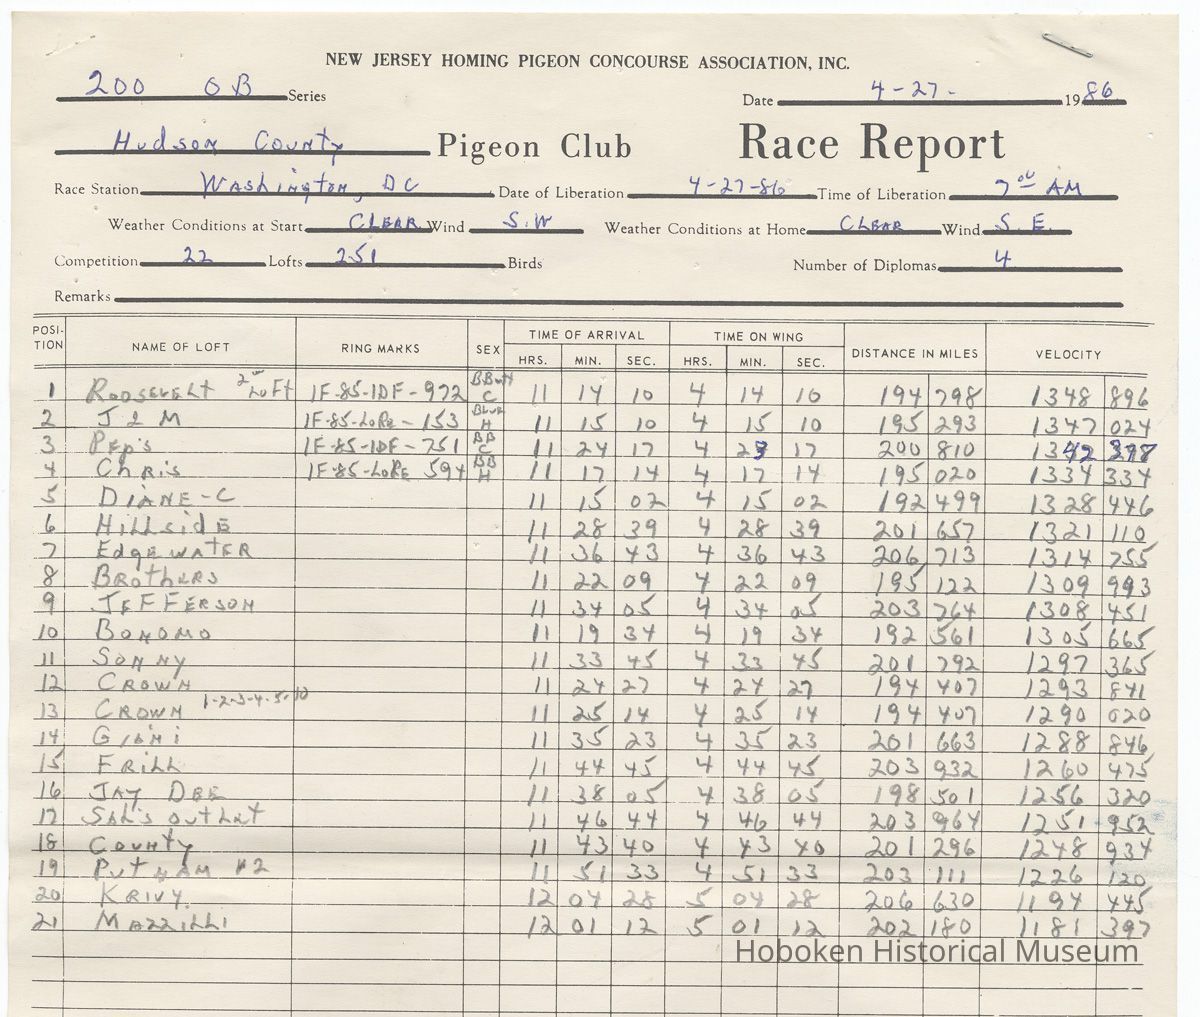 NEW JERSEY HOMING PIGEON CONCOURSE ASSOCIATION, INC.
200 OB Series
Date 4-27- 1986
Hudson County Pigeon Club Race Report
Race Station Washington, DC Date of Liberation 4-27-86 Time of Liberation 7 00 AM
Weather Conditions at Start CLEAR Wind S.W Weather Conditions at Home CLEAR Wind S.E.
Competition 22 Lofts 251 Birds Number of Diplomas 4
Remarks
POSI-TION NAME OF LOFT RING MARKS SEX TIME OF ARRIVAL TIME ON WING DISTANCE IN MILES VELOCITY
HRS. MIN. SEC. HRS. MIN. SEC.
1 Roosevelt 2nd Loft IF-85-IDF-972 C 11 14 10 4 14 10 194 798 1348 896
2 J & M IF-85-LoRe-153 H 11 15 10 4 15 10 195 293 1347 024
3 Pep's IF-85-IDF-751 BB C 11 24 17 4 17 200 810 1342 398
4 Chris IF-85-LoRe 594 BB H 11 17 14 4 17 14 195 020 1334 334
5 DIANE-C 11 15 02 4 15 02 192 499 1328 446
6 Hillside 11 28 39 4 28 39 201 657 1321 110
7 Edgewater 11 36 43 4 36 43 206 713 1314 755
8 Brothers 11 22 09 4 22 09 195 122 1309 993
9 JEFFERSON 11 34 05 4 34 05 203 764 1308 451
10 Bonomo 11 19 34 4 19 34 192 561 1305 665
11 Sonny 11 33 45 4 33 45 201 792 1297 365
12 Crown 11 24 27 4 24 27 194 407 1293 841
13 Crown 1-2-3-4-5-10 11 25 14 4 25 14 194 407 1290 020
14 Gianni 11 35 23 4 35 23 201 663 1288 846
15 Frill 11 44 45 4 44 45 203 932 1260 475
16 JAY DEE 11 38 05 4 38 05 198 501 1256 320
17 Sal's Outlet 11 46 44 4 46 44 203 964 1251 952
18 County 11 43 40 4 43 40 201 296 1248 934
19 Putnam #2 11 51 33 4 51 33 203 111 1226 120
20 Krivy. 12 04 28 5 04 28 206 630 1194 445
21 Mazzilli 12 01 12 5 01 12 202 180 1181 397
Hoboken Historical Museum